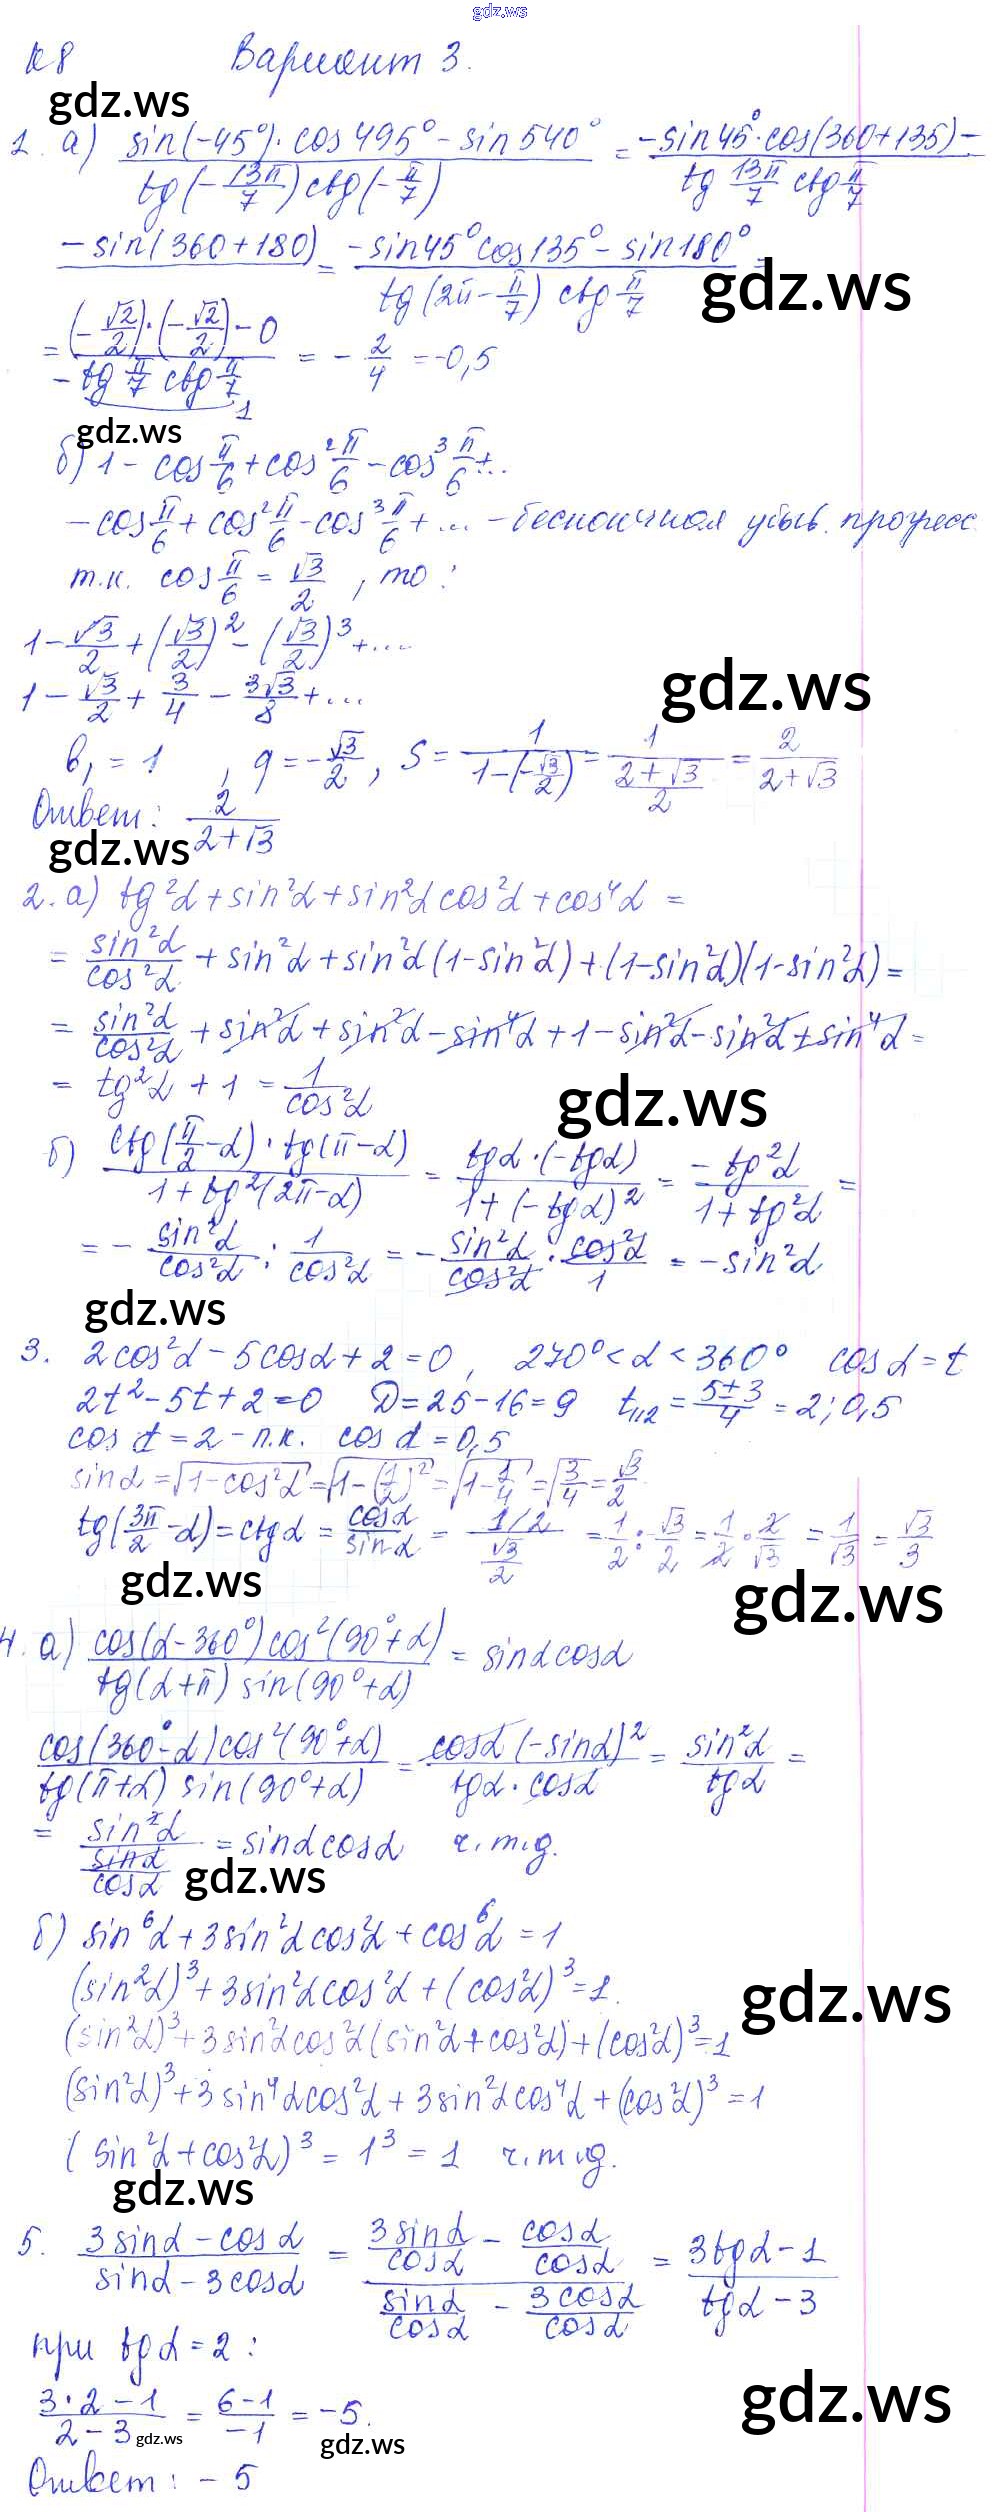 gdz.ws
К 8 Вариант 3.
gdz.ws
1. а) (sin(-45°)·cos495° - sin540°)/(tg(-13π/7)ctg(-π/7)) = (-sin45°·cos(360+135)-)/(tg 13π/7 ctg π/7)
-sin(360+180) = (-sin45°cos135° - sin180°)/(tg(2π-π/7) ctg π/7) =
gdz.ws
= ((-√2/2)·(-√2/2)-0)/(-tg π/7 ctg π/7) = -2/4 = -0,5
1
gdz.ws
б) 1 - cos π/6 + cos² π/6 - cos³ π/6 + ...
-cos π/6 + cos² π/6 - cos³ π/6 + ... - бесконечная убыв. прогресс
т.к. cos π/6 = √3/2, то:
1 - √3/2 + (√3/2)² - (√3/2)³ + ...
gdz.ws
1 - √3/2 + 3/4 - 3√3/8 + ...
b₁ = 1, q = -√3/2, S = 1/(1-(-√3/2)) = 1/((2+√3)/2) = 2/(2+√3)
Ответ: 2/(2+√3)
gdz.ws
2. а) tg²α + sin²α + sin²α cos²α + cos⁴α =
= sin²α/cos²α + sin²α + sin²α(1-sin²α) + (1-sin²α)(1-sin²α) =
= sin²α/cos²α + sin²α + sin²α - sin⁴α + 1 - sin²α - sin²α + sin⁴α =
= tg²α + 1 = 1/cos²α
gdz.ws
б) (ctg(π/2-α)·tg(π-α))/(1+tg²(2π-α)) = (tgα·(-tgα))/(1+(-tgα)²) = -tg²α/(1+tg²α) =
= -sin²α/cos²α : 1/cos²α = -sin²α/cos²α · cos²α/1 = -sin²α
gdz.ws
3. 2cos²α - 5cosα + 2 = 0, 270° < α < 360° cosα = t
2t² - 5t + 2 = 0 D = 25-16 = 9 t₁,₂ = (5±3)/4 = 2; 0,5
cos α = 2 - п.к. cos α = 0,5
sinα = √(1-cos²α) = √(1-(1/2)²) = √(1-1/4) = √(3/4) = √3/2
tg(3π/2-α) = ctgα = cosα/sinα = (1/2)/(√3/2) = 1/2 : √3/2 = 1/2 · 2/√3 = 1/√3 = √3/3
gdz.ws
gdz.ws
4. а) (cos(α-360°)cos²(90°+α))/(tg(α+π) sin(90°+α)) = sinαcosα
(cos(360°-α)cos²(90°+α))/(tg(π+α) sin(90°+α)) = (cosα(-sinα)²)/(tgα·cosα) = sin²α/tgα =
= sin²α/(sinα/cosα) = sinαcosα ч.т.д.
gdz.ws
б) sin⁶α + 3sin²αcos²α + cos⁶α = 1
(sin²α)³ + 3sin²αcos²α + (cos²α)³ = 1.
gdz.ws
(sin²α)³ + 3sin²αcos²α(sin²α + cos²α) + (cos²α)³ = 1
(sin²α)³ + 3sin⁴αcos²α + 3sin²αcos⁴α + (cos²α)³ = 1
(sin²α + cos²α)³ = 1³ = 1 ч.т.д.
gdz.ws
5. (3sinα - cosα)/(sinα - 3cosα) = (3sinα/cosα - cosα/cosα)/(sinα/cosα - 3cosα/cosα) = (3tgα-1)/(tgα-3)
при tgα = 2:
gdz.ws
(3·2-1)/(2-3) = (6-1)/(-1) = -5.
gdz.ws
gdz.ws
Ответ: -5